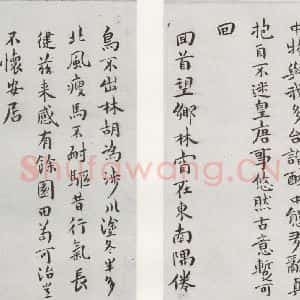 與我多
抱自不迷皇唐事悠然古意暫可
回
回首望鄉林宛在東南隅倦
鳥不出林胡為涉川塗冬半多
北風瘦馬不耐驅昔行氣長
健茲来感有餘園田苟可治豈
不懷安居
Shufawang.CN